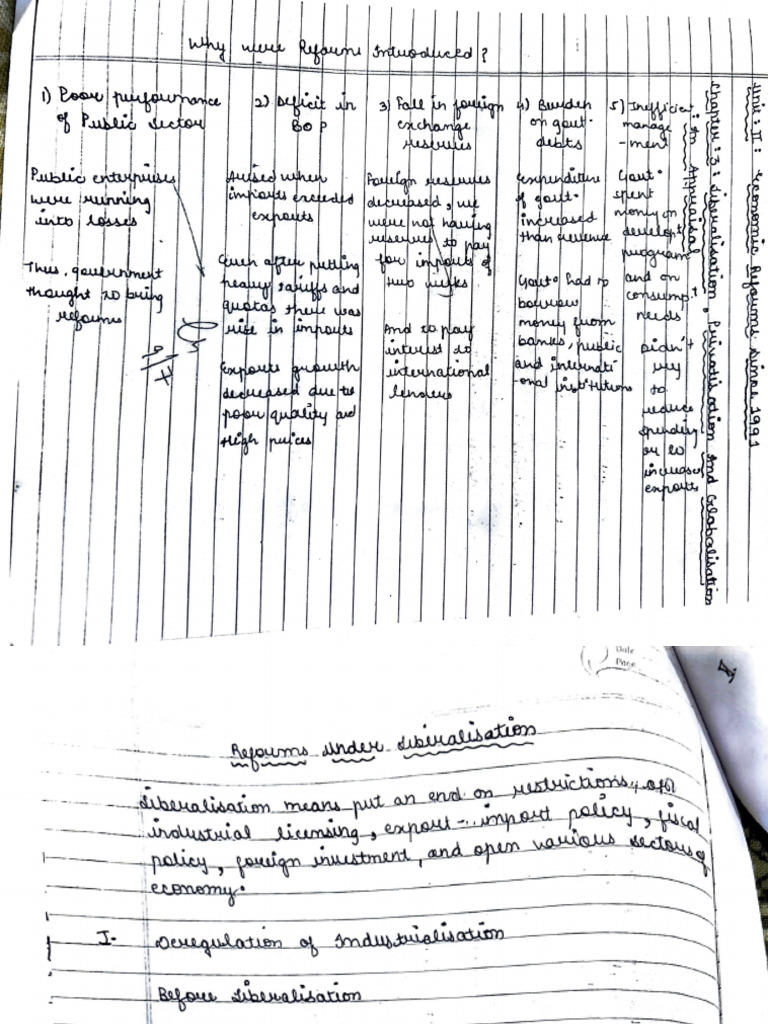 Unit : II : Economic Reforms since 1991
Chapter : 3 : Liberalisation, Privatisation and Globalisation
: An Appraisal
Why were Reforms Introduced ?
1) Poor performance
of Public Sector
Public enterprises
were running
into losses
Thus, government
thought to bring
reforms
2) Deficit in
BOP
Arised when
imports exceeded
exports
Even after putting
heavy tariffs and
quotas there was
rise in imports
Exports growth
decreased due to
poor quality and
High prices
3) Fall in foreign
exchange
reserves
Foreign reserves
decreased, we
were not having
reserves to pay
for imports of
two weeks
And to pay
interest to
international
lenders
4) Burden
on govt.
debts
Expenditure
of govt.
increased
than revenue
Govt. had to
borrow
money from
banks, public
and internati
-onal institutions
5) Inefficient
manage
-ment
Govt.
spent
money on
developt
program
and on
consump.t
needs
Didn't
try
to
reduce
spending
or to
increase
exports
Date
Page
Reforms under Liberalisation
Liberalisation means put an end on restrictions, of
industrial licensing, export - import policy, fiscal
policy, foreign investment, and open various sectors of
economy.
I- Deregulation of Industrialisation
Before Liberalisation